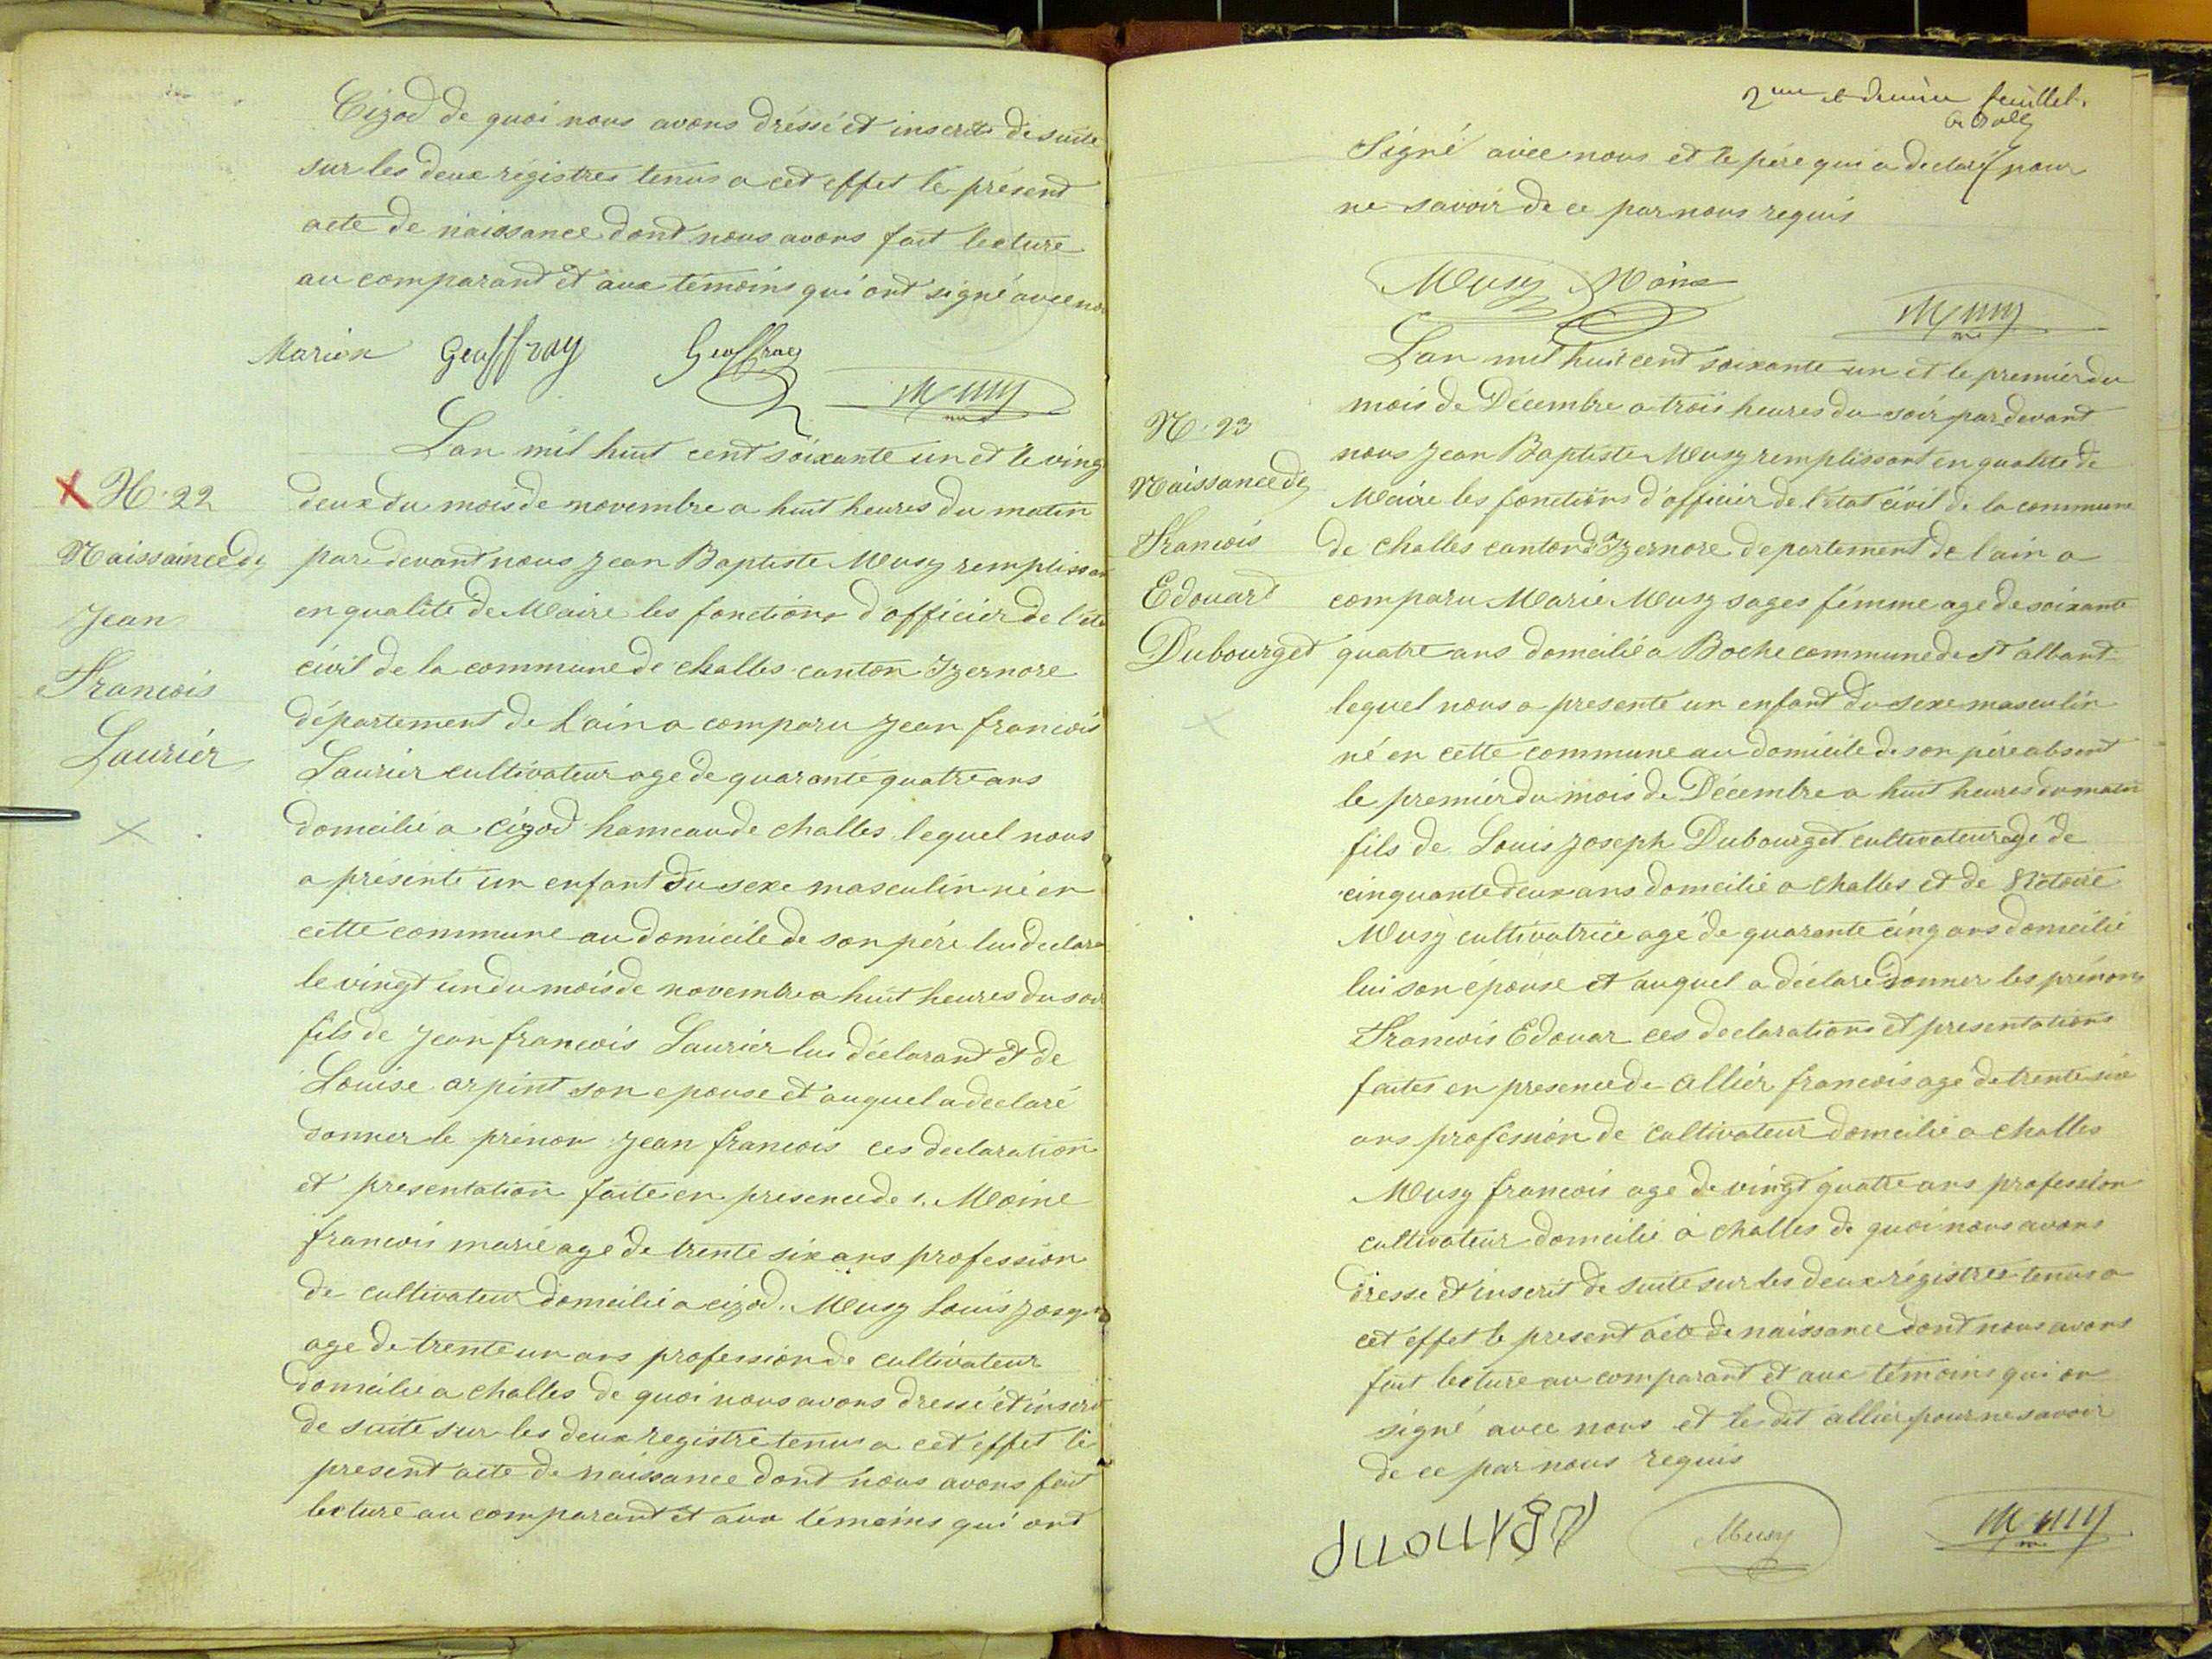 Cizod de quoi nous avons dréssé et inscrit de suite
sur les deux régistres tenus a cet effet le présent
acte de naissance dont nous avons fait lecture
au comparant et aux témoins qui ont signé avec nou
Marion Geoffray Geoffray
Lan mil huit cent soixante un et le vingt
X N. 22
Naissaince de
Jean
Francois
Laurier
deux du mois de novembre a huit heures du matin
par devant nous Jean Baptiste Musy remplissan
en qualité de Maire les fonctions d'officier de l'éta
civil de la commune de challes canton Izernore
département de Lain a comparu Jean francois
Laurier cultivateur age de quarante quatre ans
domicilié a cizod hameau de challes lequel nous
a présenté un enfant du sexe masculin né en
cette commune au domicile de son père lui declara
le vingt un du mois de novembre a huit heures du soir
fils de Jean francois Laurier lui déclarant et de
Louise arpint son epouse et auquel a declaré
donner le prénon Jean francois ces declaration
et presentation faite en presence de 1. Moine
francois marie age de trente six ans profession
de cultivateur domicilié a cizod. Musy Louis Joseph
age de trente un ans profession de cultivateur
domicilié a challes de quoi nous avons dressé et inscrit
de suite sur les deux registre tenus a cet effet le
present acte de naissance dont nous avons fait
lecture au comparant et aux témoins qui ont
2me et dernier feuillet.
Signé avec nous et le père qui a declaré pour
ne savoir de ce par nous requis
Musy Moine
Lan mil huit cent soixante un et le premier du
N. 23
Naissance de
Francois
Edouard
Dubourget
mois de Décembre a trois heures du soir par devant
nous Jean Baptiste Musy remplissant en qualité de
Maire les fonctions d'officier de l'état civil de la commune
de challes canton d'Izernore departement de lain a
comparu Marie Musy sages fémme age de soixante
quatre ans domicilié a Boche commune de St albant
lequel nous a presenté un enfant du sexe masculin
né en cette commune au domicile de son père absent
le premier du mois de Décembre a huit heures du matin
fils de Louis Joseph Dubourget cultivateur agé de
cinquante deux ans domicilié a challes et de
Musy cultivatrice agé de quarante cinq ans domicilié
lui son épouse et auquel a déclaré donner les prénoms
Francois Edouar ces declarations et presentations
faites en presence de allier francois age de trente six
ans profession de cultivateur domicilié a challes
Musy francois age de vingt quatre ans profession
cultivateur domicilié a challes de quoi nous avons
dressé et inscrit de suite sur les deux régistres tenus a
cet effet le present acte de naissance dont nous avons
fait lecture au comparant et aux témoins qui on
signé avec nous et le dit allier pour ne savoir
de ce par nous requis
Musy